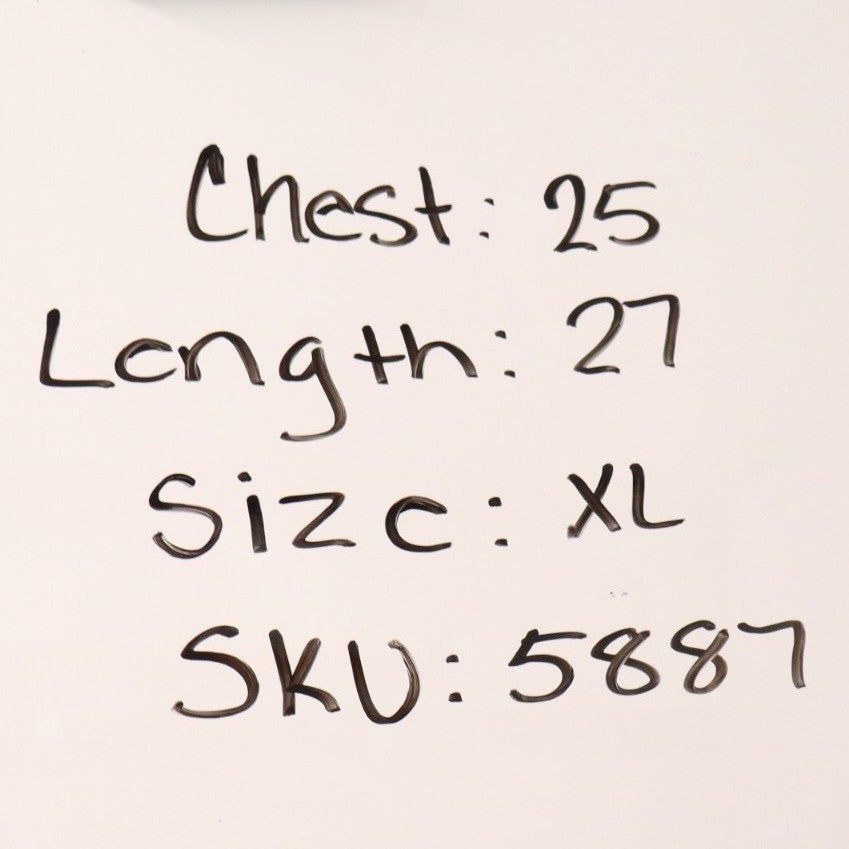 Chest: 25
Length: 27
Size: XL
SKU: 5887